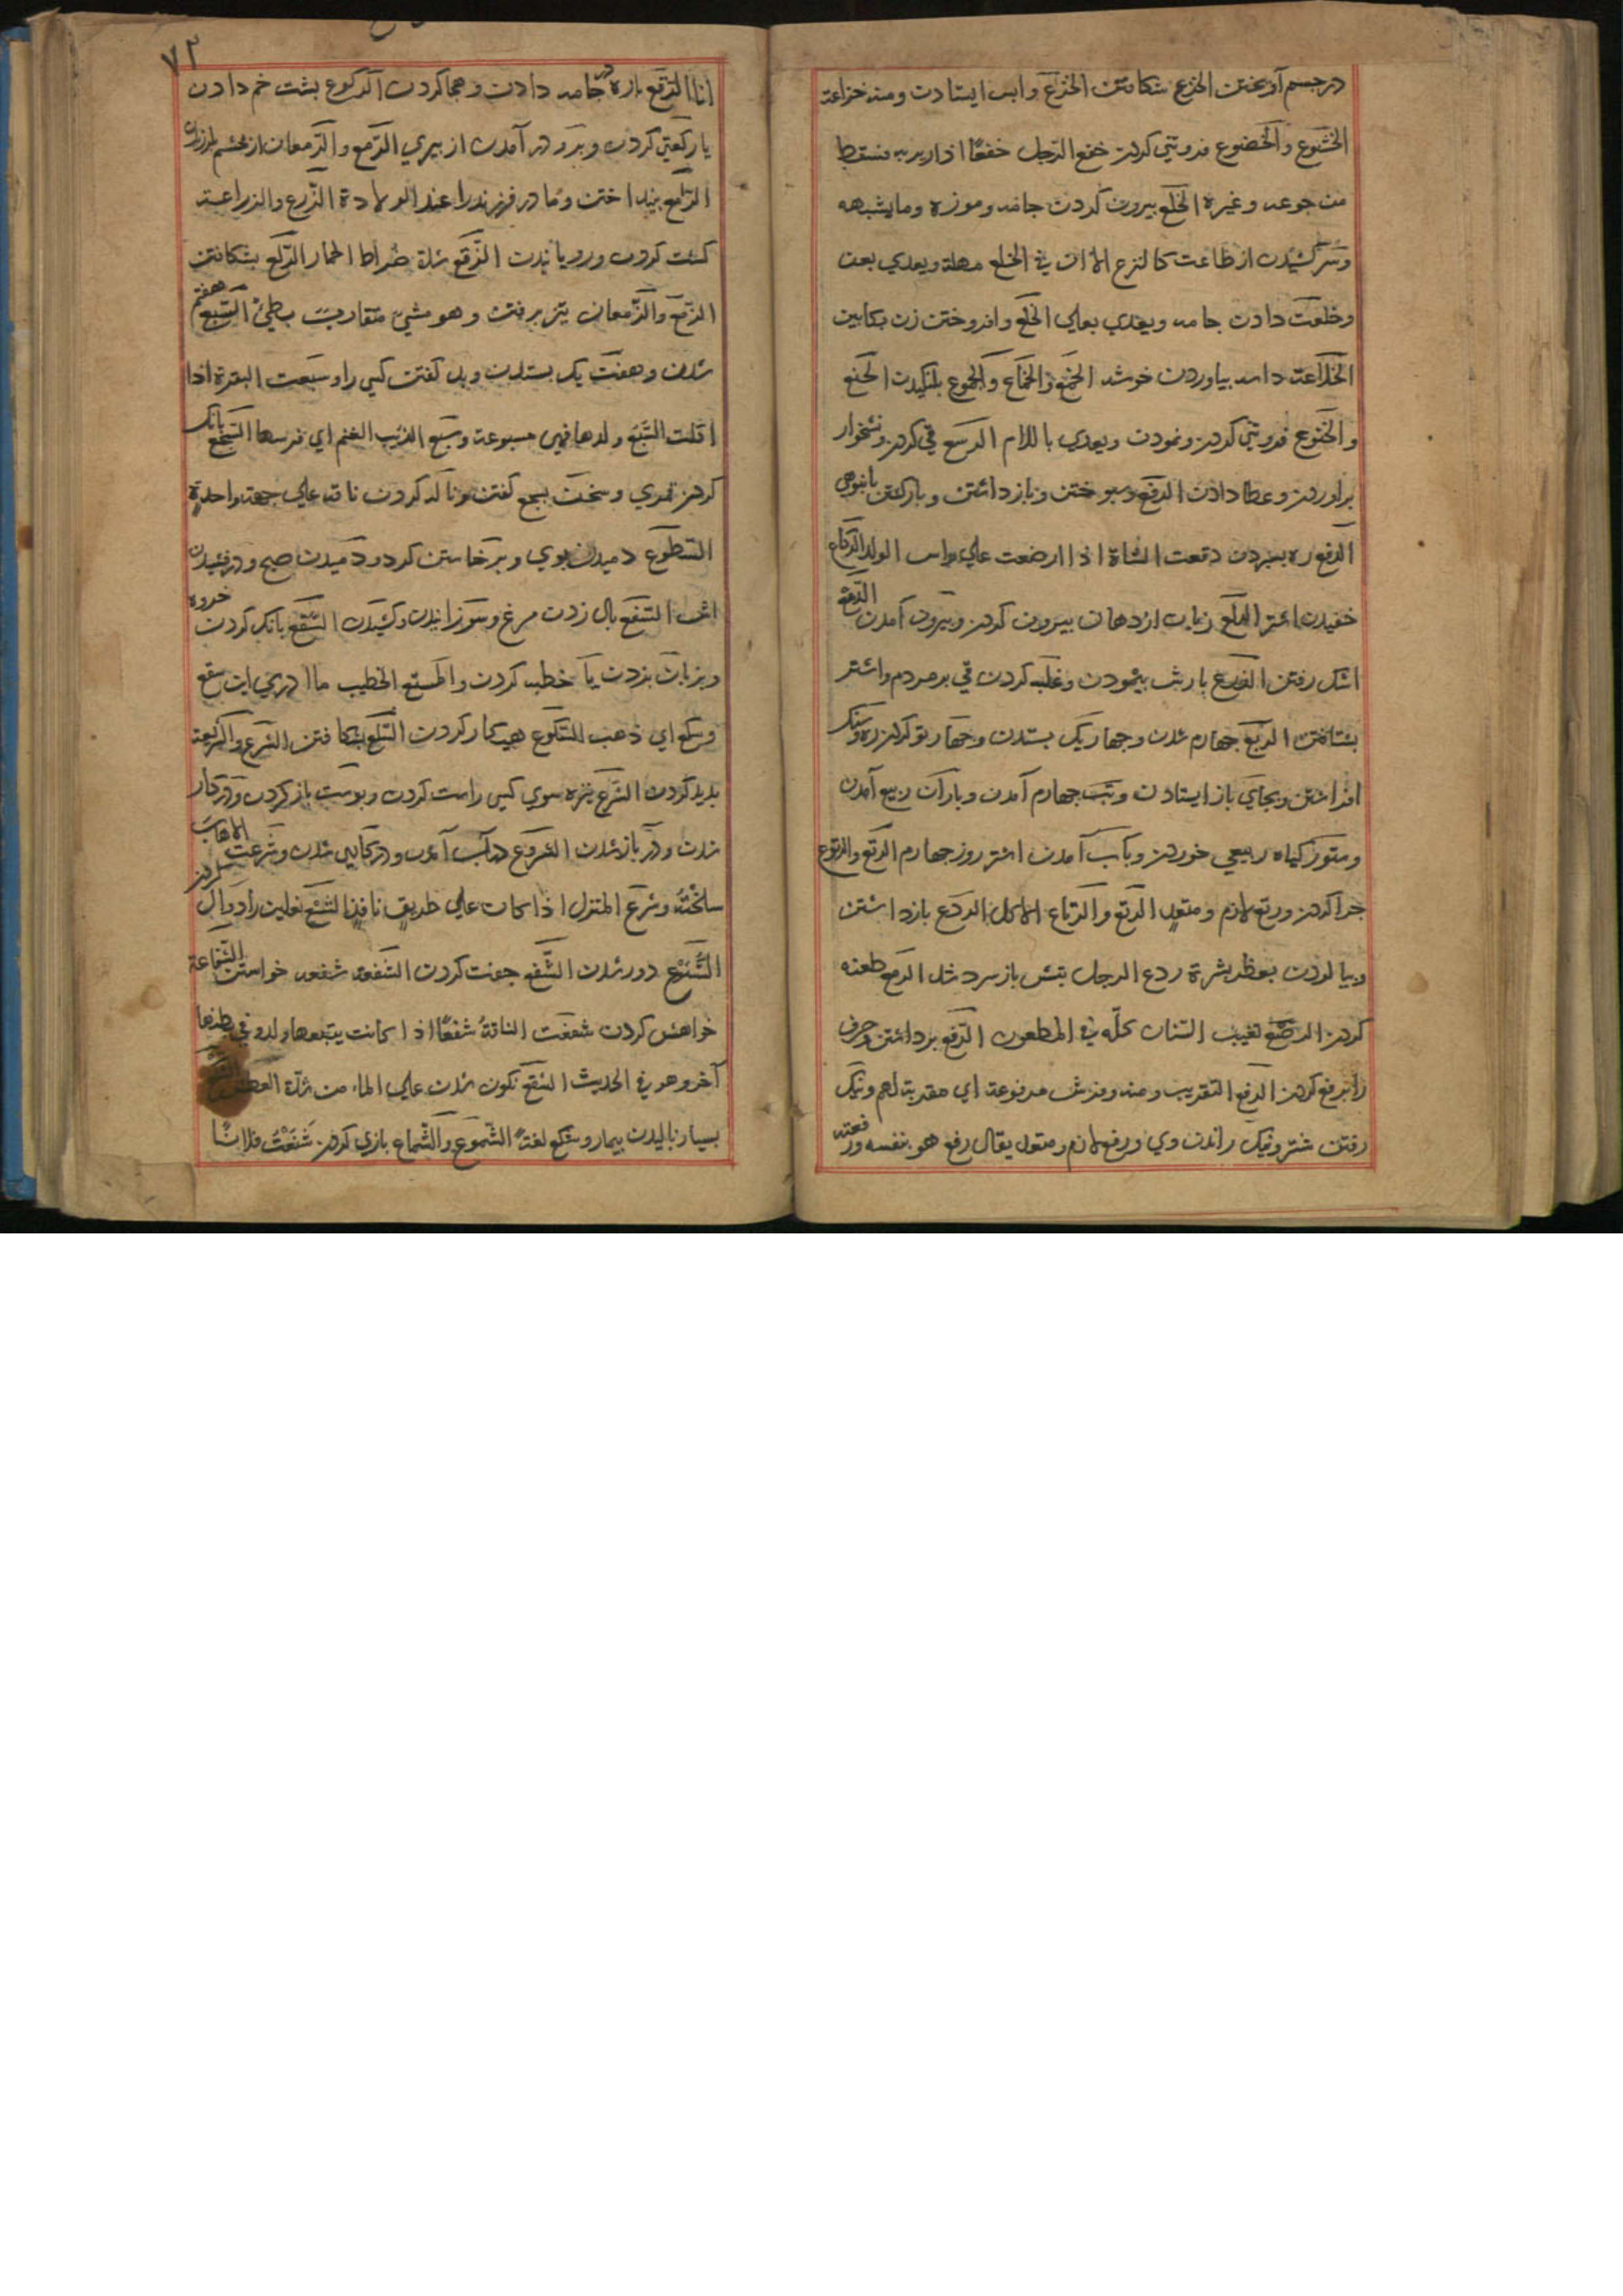 در چشم آویختن الخزع شکافتن الخزع وابس ایستادن ومنه خزاعة
الخشوع والخضوع فروتنی کردن خفع الرجل خفعًا اذا دیر به فسقط
من جوعه وغیره الخلع بیرون کردن جامه وموزه وما یشبهه
وسر کشیدن از طاعت کالنزع الا ان فی الخلع مهلة ویعدی بعن
وخلعت دادن جامه ویعدی بعلی الخلع وافروختن زن بکابین
الخلاعة دامه بیاوردن خوشه الخمع والخماع والخموع لنکیدن الخنع
والخنوع فروتنی کردن ونمودن ویعدی باللام الدسع قی کردن ونشخوار
براوردن وعطا دادن الدفع وسپوختن وبازداشتن وبازکشتن بانبوهی
الدفع ره بسپردن دفعت الشاة اذا ارضعت علی راس الولد الدکاع
خفیدن اشتر الدلع زبان از دهان بیرون کردن وبیرون آمدن الدمع
اشک رفتن الذرع بارش بیمودن وغلبه کردن قی بر مردم واشتر
بشتافتن الربع جهارم شدن وجهاریک بستدن وجهارتو کردن زه وسنک
افراشتن وبجای باز ایستادن وتب جهارم آمدن وباران ربیع آمدن
وستور کیاه ربیعی خوردن وبآب آمدن اشتر روز جهارم الرتع والرتوع
جرا کردن ورتع لازم ومتعد الرتع والرتاع الاکل الردع بازداشتن
وبیالودن بعطر بشرة ردع الرجل بتش باز سرد شد الردع طعنه
کردن الرصع تغییب السنان کله فی المطعون الرفع برداشتن وحرف
را برفع کردن الرفع التقریب ومنه وفرش مرفوعة ای مقربة لهم ونیک
رفتن شتر ونیک راندن وی ورفع لازم ومتعد یقال رفع هو بنفسه ورفعته
۷۲
انا الرقع باره در جامه دادن وهجا کردن الرکوع بشت خم دادن
یا رکعتی کردن وبرو در آمدن از بیری الرمع والرمعان از خشم لرزیدن
الرمع بینداختن ومادر فرزند را عند الولادة الزرع والزراعة
کشت کردن ورویانیدن الزقع شدة ضراط الحمار الزلع بشکافتن
الزمع والزمعان تیز برفتن وهو مشی متقارب بطیء السبع هفتم
شدن وهفت یک بستدن وبد کفتن کسی را وسبعت البقرة اذا
اکلت السبع ولدها فهی مسبوعة وسبع الذئب الغنم ای فرسها السجع بانک
کردن قمری وسخن بسجع کفتن وناله کردن ناقه علی جهة واحدة
السطوع دمیدن بوی وبرخاستن کرد ودمیدن صبح ودرخشیدن
السفع بال زدن مرغ وسوزانیدن وکشیدن السقع بانک کردن خروه
وبزبان بزدن یا خطبه کردن والمسقع الخطیب ما ادری این سقع
وسکع ای ذهب السکوع هیچ کار کردن السلع بشکافتن الشرع والشریعة
بدید کردن الشرع نیزه سوی کسی راست کردن وبوست باز کردن ودر کار
شدن ودر باز شدن الشروع در آب آمدن ودر کاری شدن وشرعت الاهاب
سلخته وشرع المنزل اذا کان علی طریق نافذ الشسع نعلین را دوال کردن
الشسوع دور شدن الشفع جفت کردن الشفعة شفعه خواستن الشفاعة
خواهش کردن شفعت الناقة شفعًا اذا کانت یتبعها ولد وفی بطنها
آخر وهو فی الحدیث الشقع نکون شدن علی الماء من شدة العطش
بسیار نالیدن بیمار وشکع لغة الشموع والشماع بازی کردن شفعت فلانًا